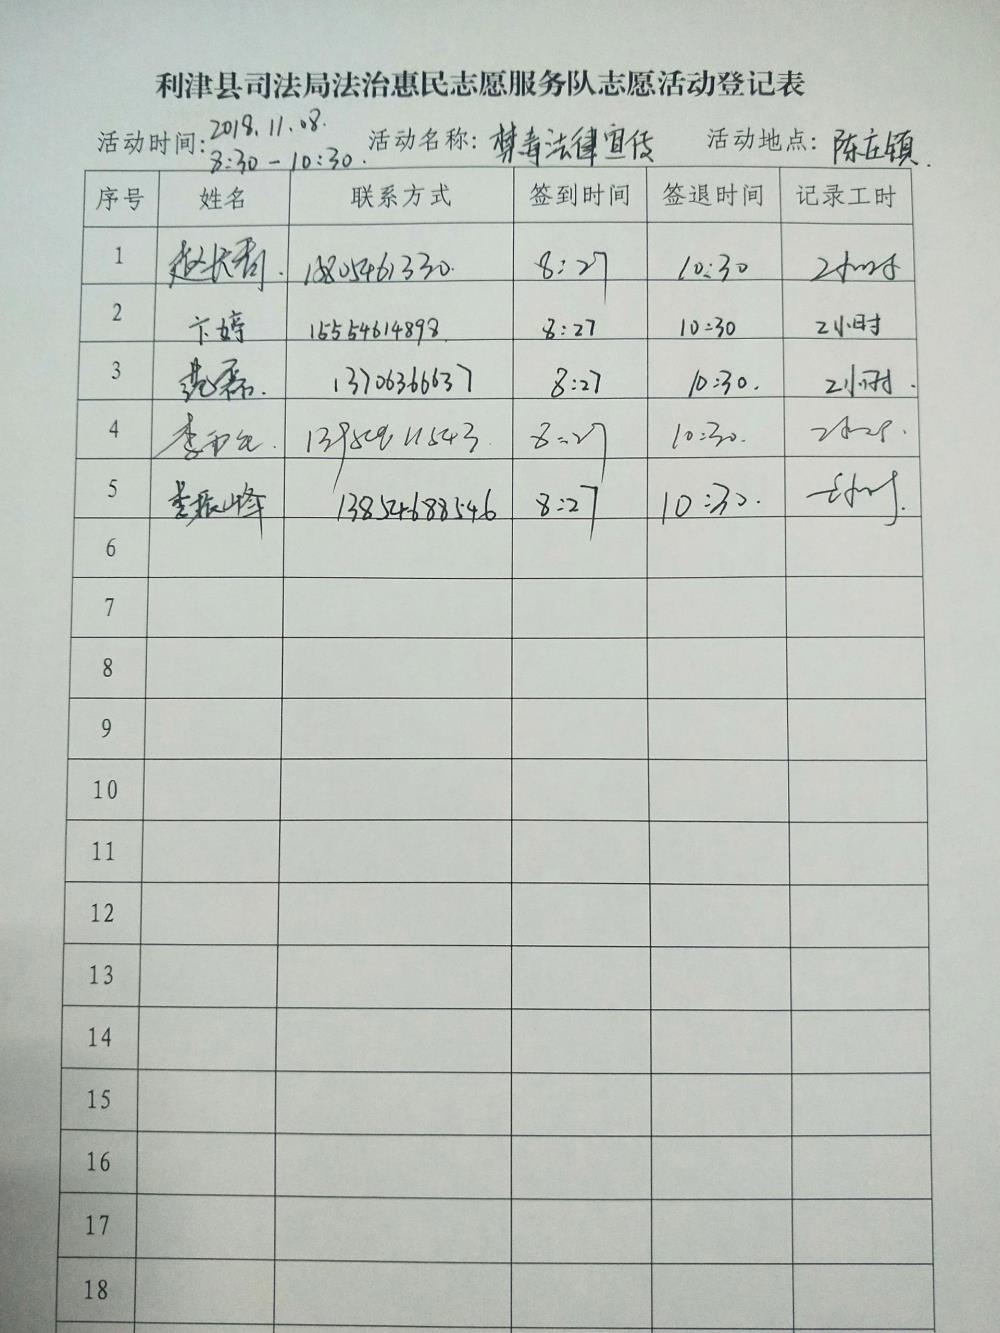 利津县司法局法治惠民志愿服务队志愿活动登记表
活动时间: 2018.11.08. 8:30-10:30. 活动名称: 禁毒法律宣传 活动地点: 陈庄镇.
序号 姓名 联系方式 签到时间 签退时间 记录工时
1 8:27 10:30 2小时
2 卞婷 15554614898 8:27 10:30 2小时
3 磊. 13706366637 8:27 10:30. 2小时.
4 李 8:27 10:30. 2小时.
5 李振峰 13854688546 8:27 10:30. 2小时.
6
7
8
9
10
11
12
13
14
15
16
17
18